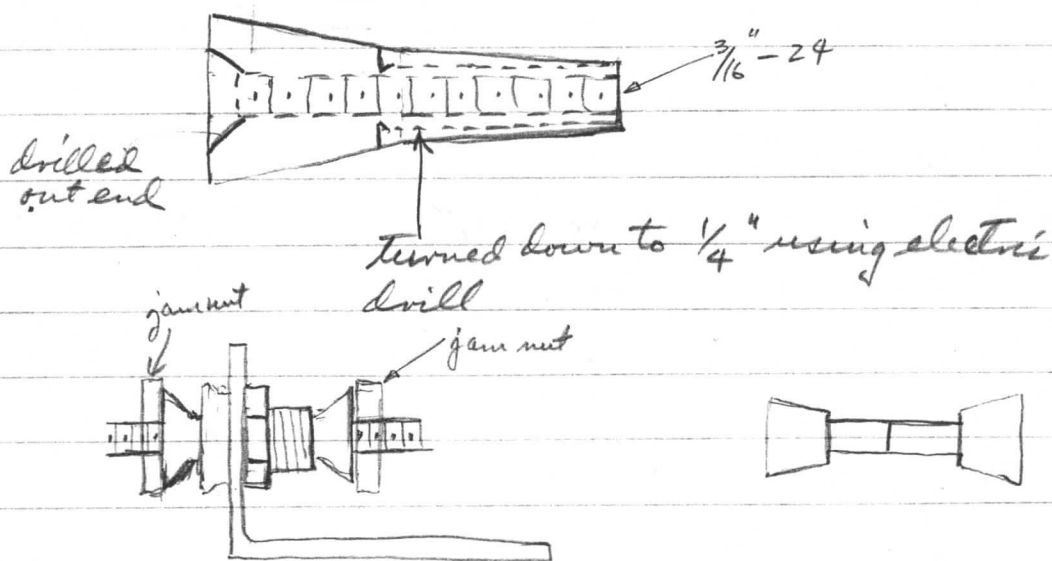 3/16" - 24
drilled
out end
turned down to 1/4" using electric
drill
jam nut
jam nut